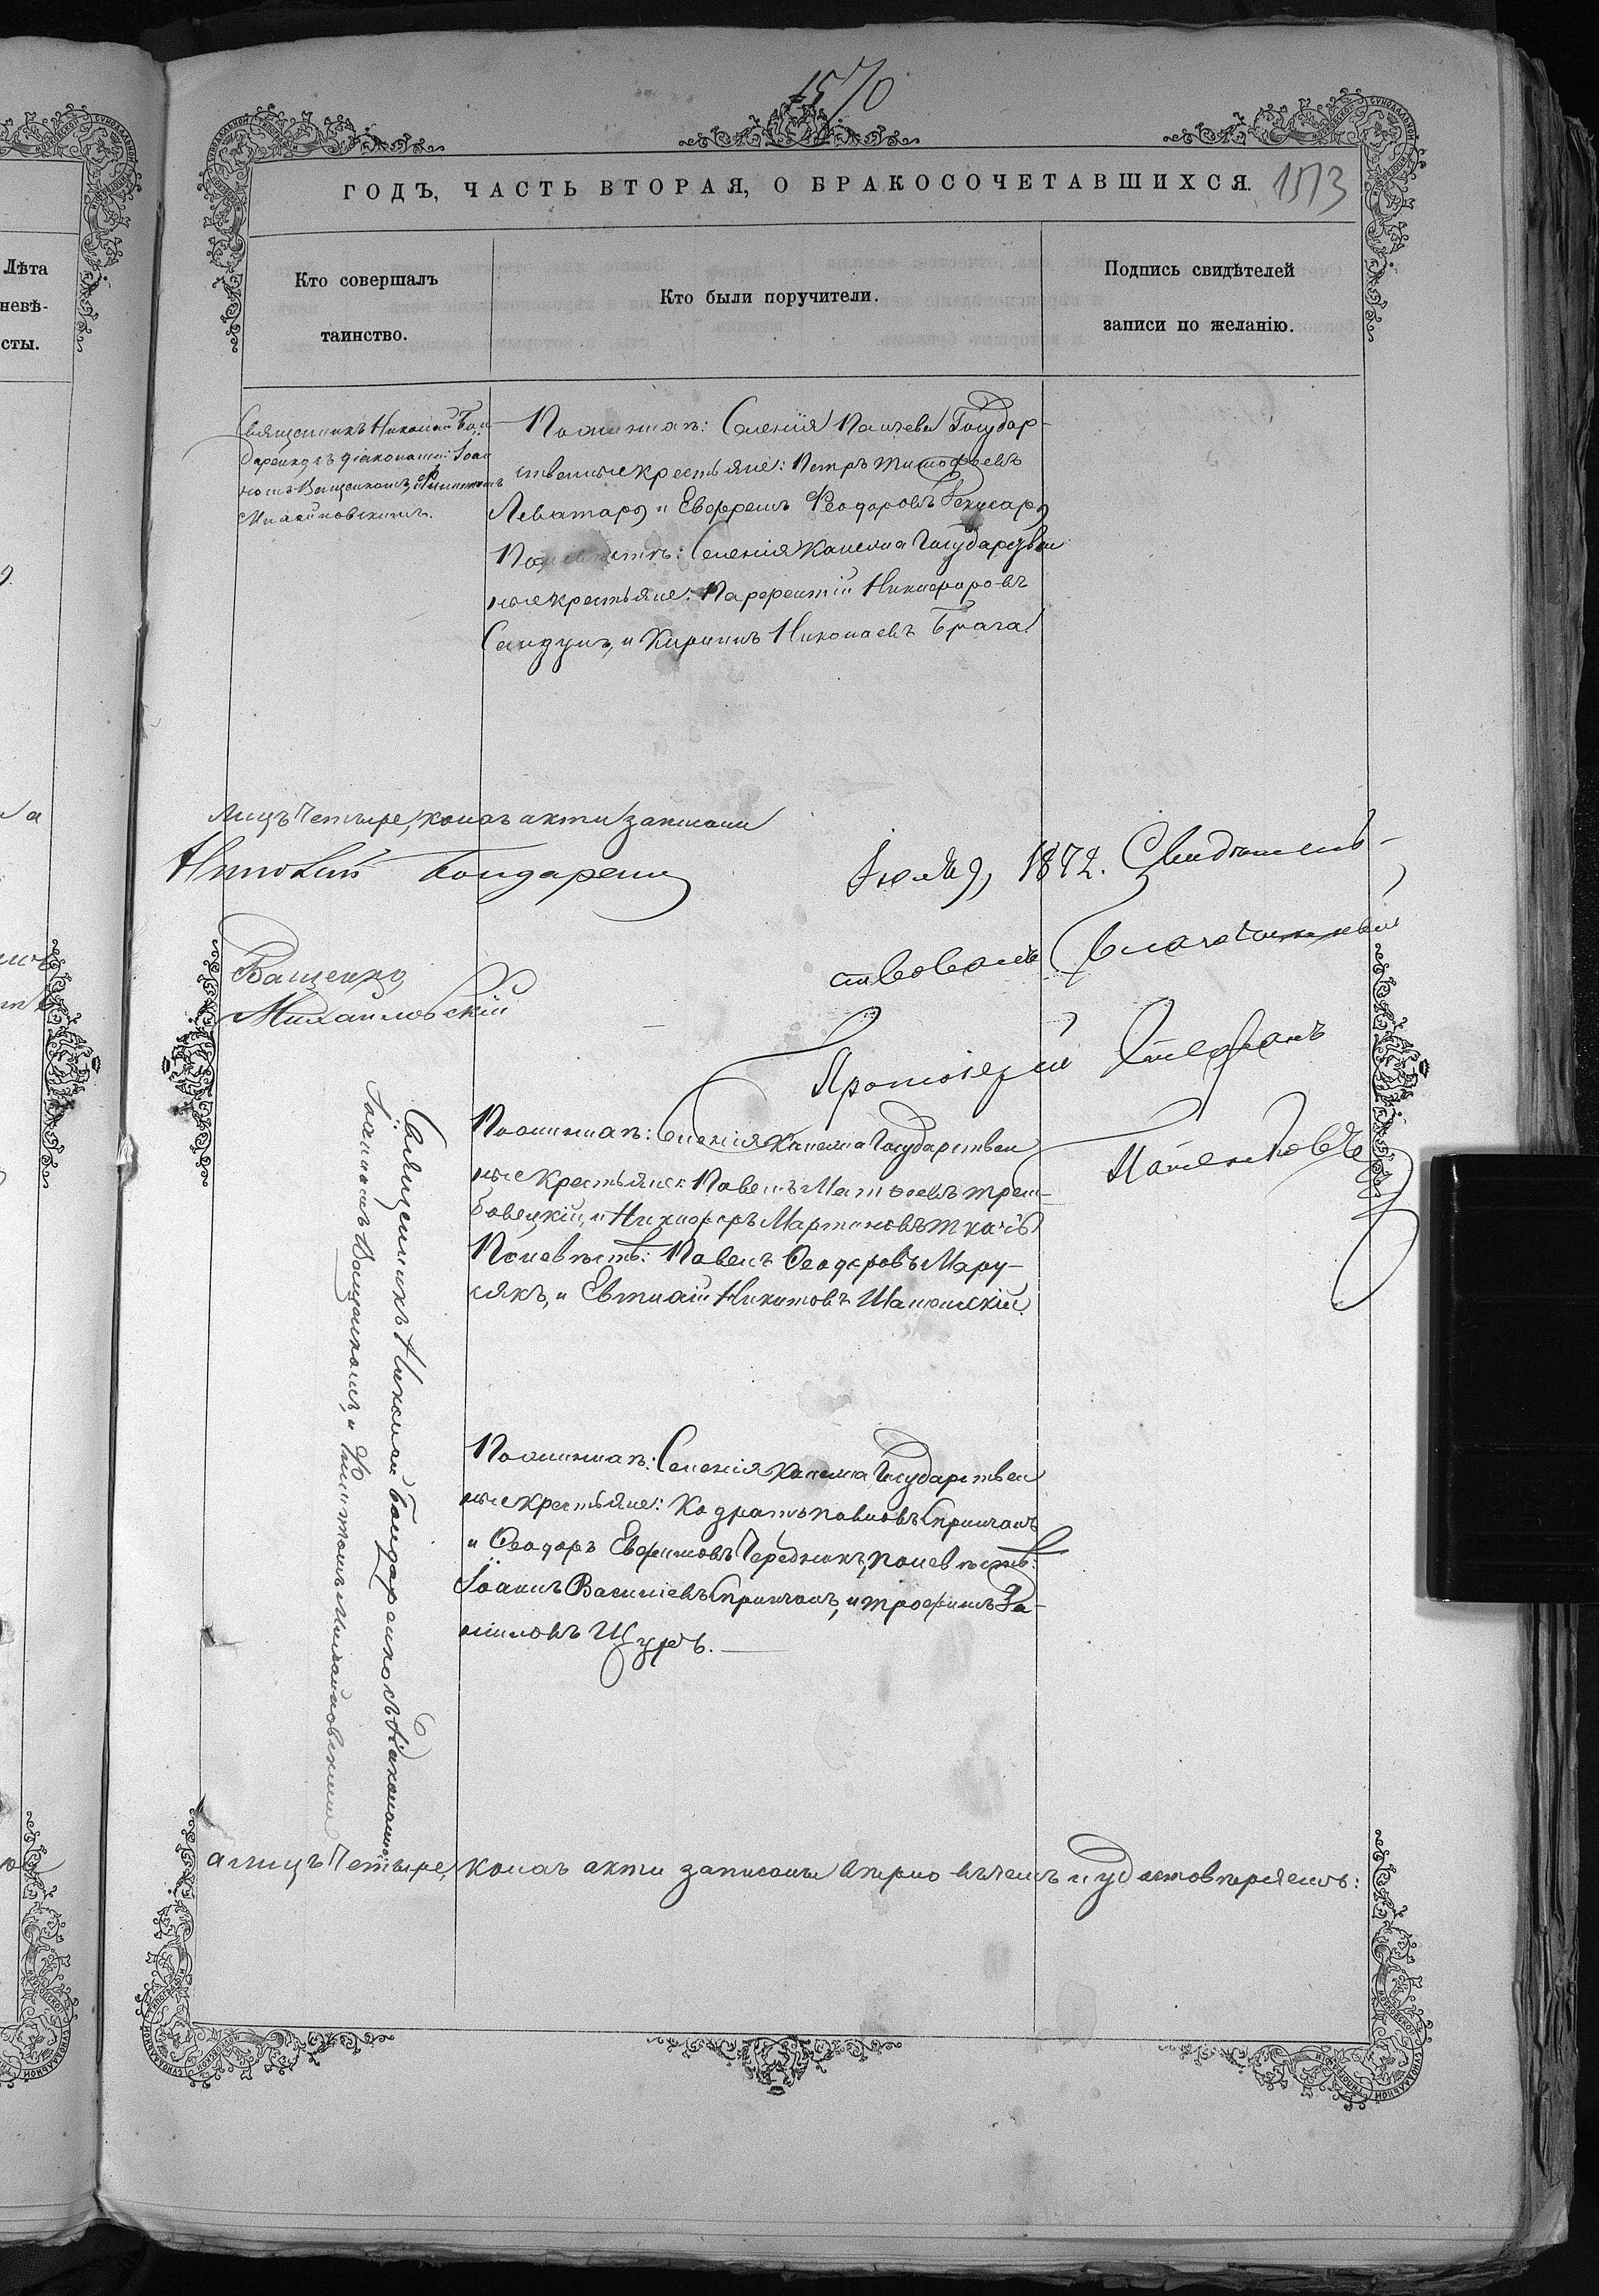 1570
ГОДЪ, ЧАСТЬ ВТОРАЯ, О БРАКОСОЧЕТАВШИХСЯ. 1573
Лѣта
невѣ-
сты.
Кто совершалъ
таинство.
Кто были поручители.
Подпись свидѣтелей
записи по желанію.
Священникъ Николай Бон
даренко съ діаконами: Іоан
номъ Ващенкомъ, и
Михайловскимъ.
По женихѣ: Селенія Государ-
ственные крестьяне: Петръ Тимофѣевъ
и Евфремъ Феодоровъ
По невѣстѣ: Селенія Государствен
ные крестьяне: Никифоровъ
и Кирилъ Николаевъ Брага.
лицъ четыре, коихъ акты записаны
Николай Бондаренко
Ващенко
Михайловскій
Іюля 9, 1872. Свидѣтель-
ствовалъ Благочинный
Протоіерей Стефанъ
Священникъ Николай Бондаренко съ діаконами
Іоанномъ Ващенкомъ, и Михайловскимъ
По женихѣ: Селенія Государствен
ные крестьяне: Павелъ Матѳеевъ Трем-
бовецкій, и Никифоръ Мартиновъ Ткачъ
По невѣстѣ: Павелъ Ѳеодоровъ Мару-
сякъ, и Евтихій Никитовъ
По женихѣ: Селенія Государствен
ные крестьяне: Кодратъ Павловъ
и Ѳеодоръ Евфимовъ Чередникъ, по невѣстѣ:
Іоаннъ Василіевъ и Трофимъ Да-
ніиловъ Щуръ.
а лицъ четыре, коихъ акты записаны вѣрно въ чемъ и удостовѣряемъ: